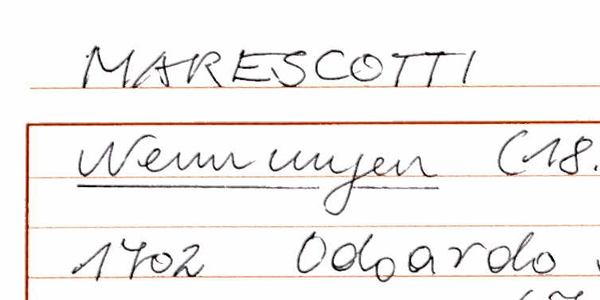 MARESCOTTI
Nennungen (18.
1702 Odoardo